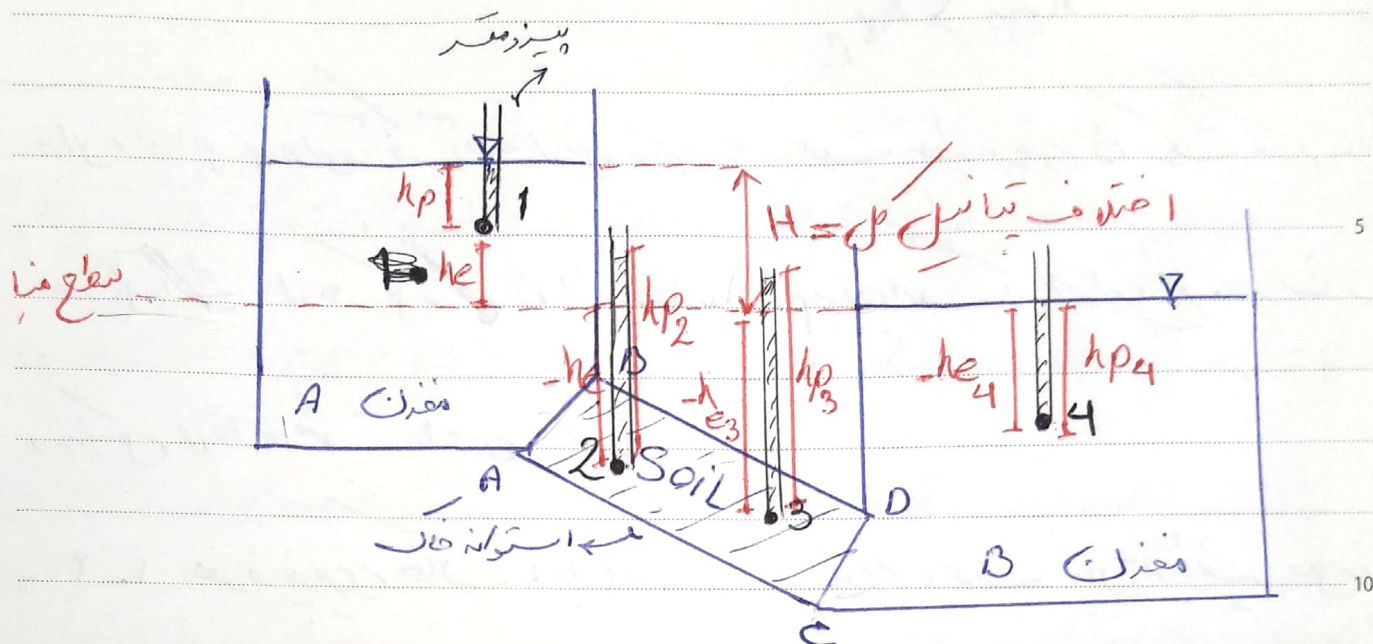 پیزومتر
hp
1
he
سطح مبنا
H = اختلاف پتانسیل کل
5
hp2
-he
B
-he3
hp3
-he4
hp4
4
مخزن A
A
2
SOIL
3
D
استوانه خاک
مخزن B
10
C